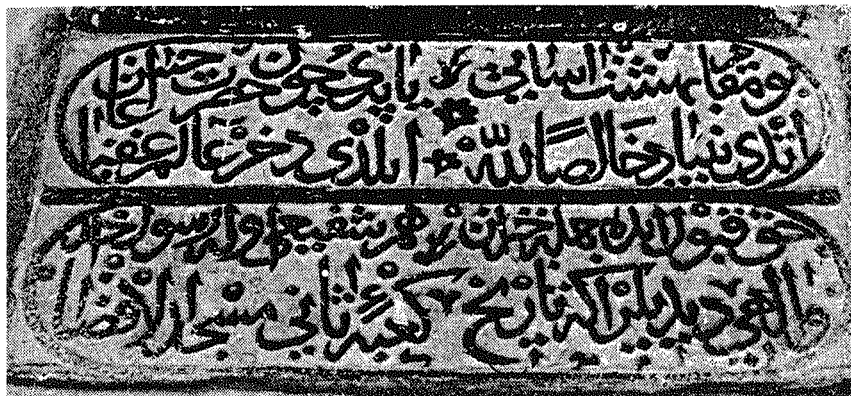 بو مقام بهشت اسایی یاپدی چون حضرت حسن اغا
اتدی بنیاد خالصا لله ایلدی ذخر عالم عقبا
حق قبول ایده جمله خیراتن هم شفیعی اوله رسول خدا
دیدیلر اکه تاریخ کعبهٔ ثانی مسجد الاقصا